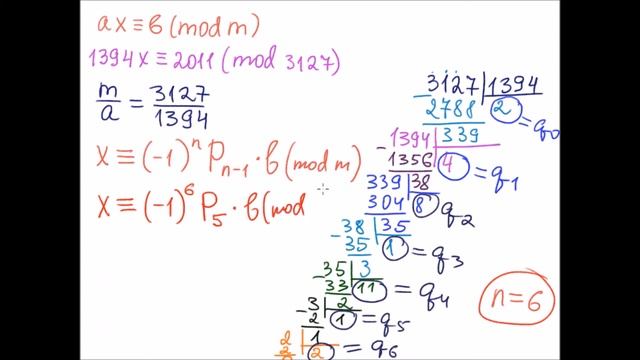 ax ≡ в (mod m)
1394x ≡ 2011 (mod 3127)
m/a = 3127/1394
x ≡ (-1)ⁿ Pₙ₋₁ · в (mod m)
x ≡ (-1)⁶ P₅ · в (mod
3127 | 1394
- 2788 | 2 = q₀
- 1394 | 339
1356 | 4 = q₁
339 | 38
304 | 8 q₂
- 38 | 35
35 | 1 = q₃
- 35 | 3
33 | 11 = q₄
- 3 | 2
2 | 1 = q₅
2 | 1
2 | 2 = q₆
n = 6